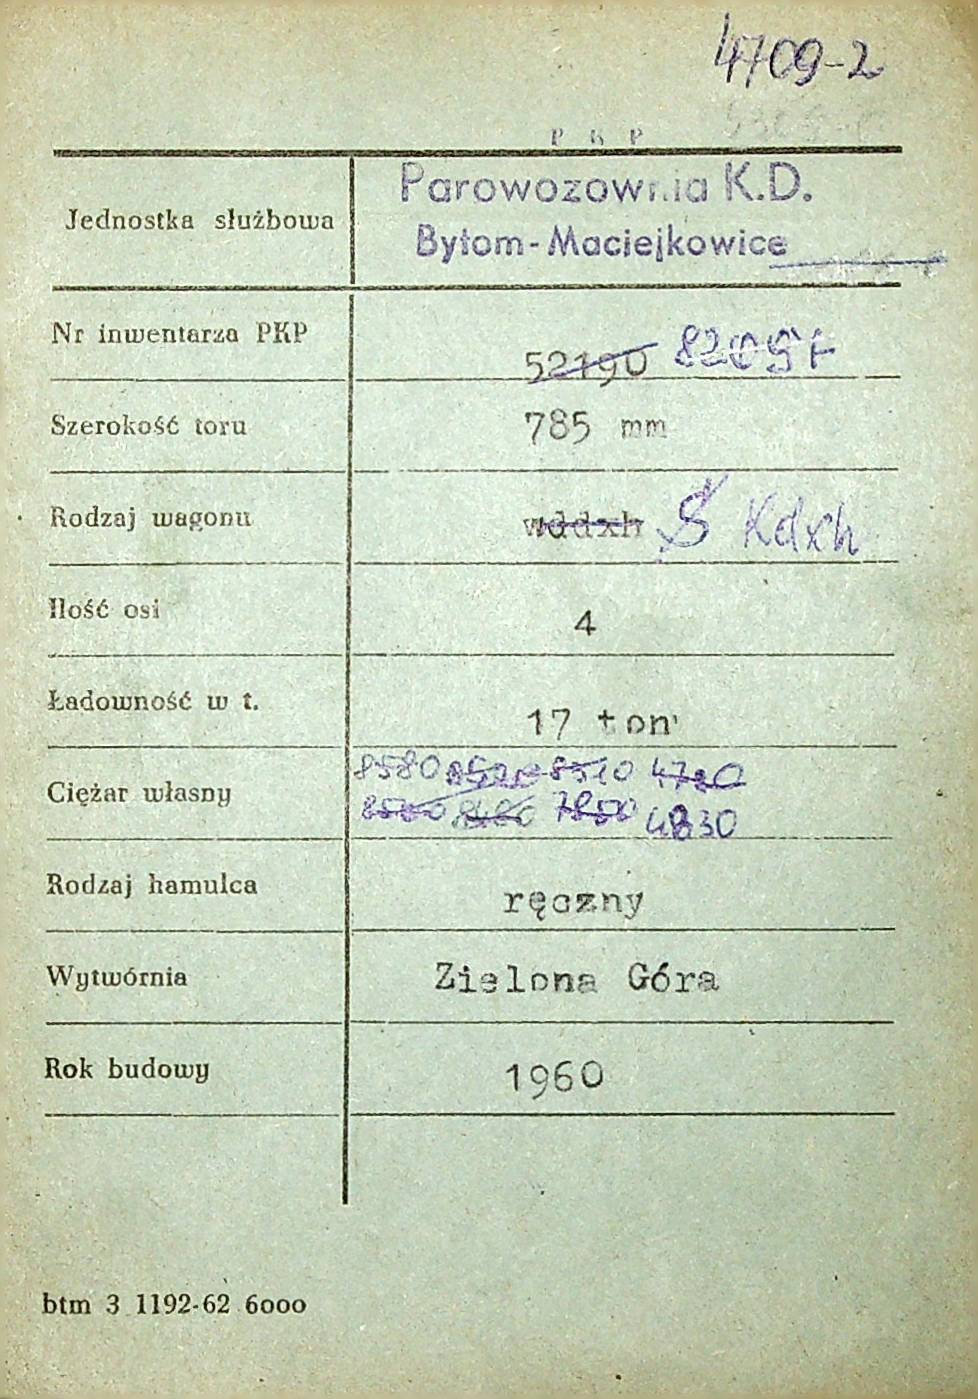 4709-2
P K P
Jednostka służbowa Parowozownia K.D.
Bytom-Maciejkowice
Nr inwentarza PKP 52190
Szerokość toru 785 mm
Rodzaj wagonu wddxh S Kdxh
Ilość osi 4
Ładowność w t. 17 ton
Ciężar własny 8580 8510 4780
7850 4830
Rodzaj hamulca ręczny
Wytwórnia Zielona Góra
Rok budowy 1960
btm 3 1192-62 6000